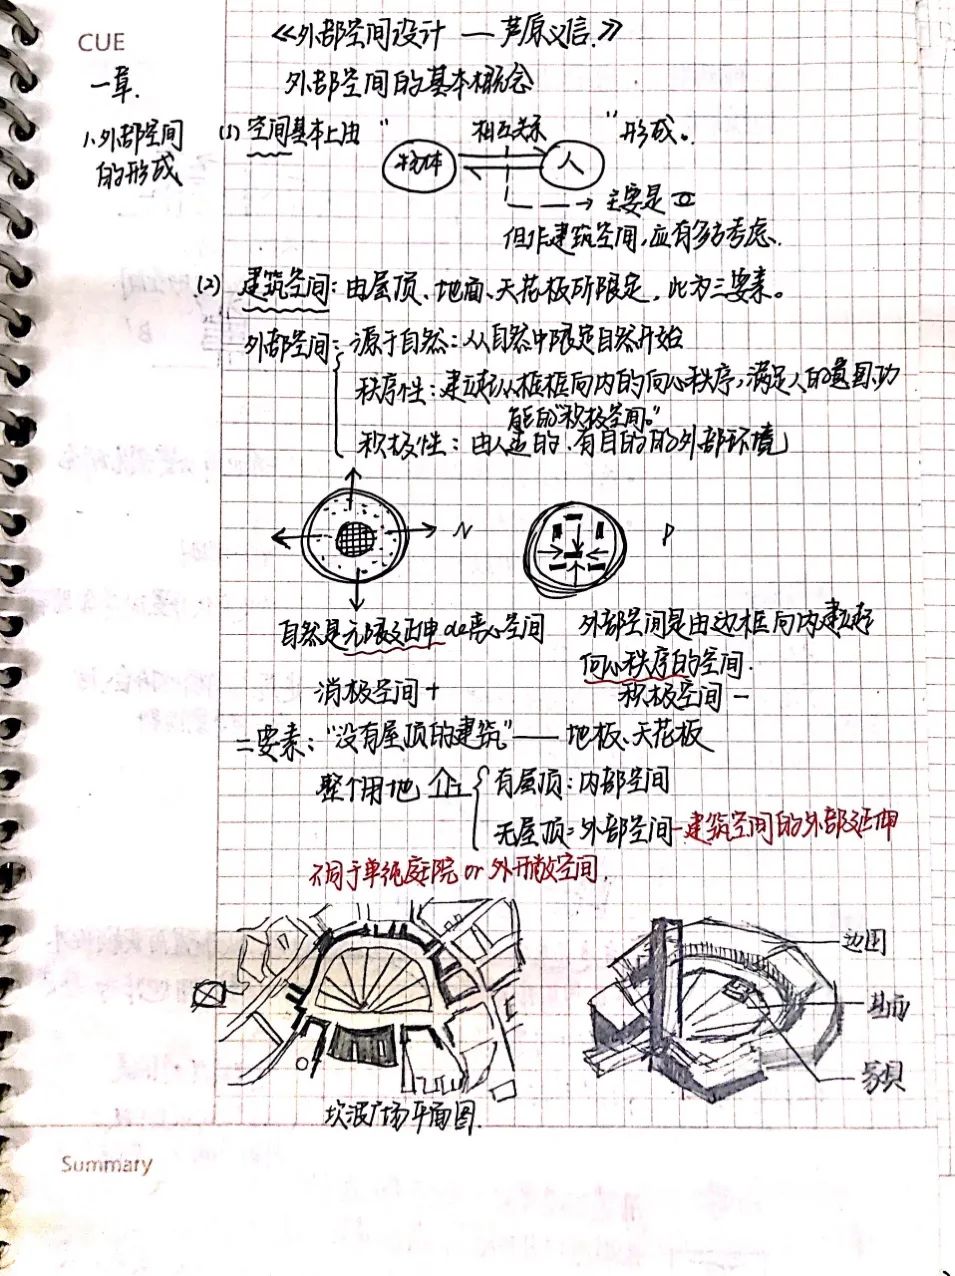 CUE
《外部空间设计 —芦原义信.》
一章.
外部空间的基本概念
1.外部空间的形成
(1) 空间基本上由“物体 相互关系 人”形成。
主要是
但作建筑空间,应有多方考虑.
(2) 建筑空间:由屋顶、地面、天花板所限定,此为三要素。
外部空间:源于自然:从自然中限定自然开始
秩序性:建立起从框框向内的向心秩序,满足人的意图功
能的“积极空间。”
积极性:由人造的.有目的的外部环境
N
P
自然是无限延伸de离心空间
外部空间是由边框向内建起
向心秩序的空间.
消极空间+
积极空间-
二要素:“没有屋顶的建筑”——地板、天花板
整个用地
有屋顶:内部空间
无屋顶:外部空间-建筑空间的外部延伸
不同于单纯庭院 or 外开敞空间.
边围
家具
坎波广场平面图.
Summary